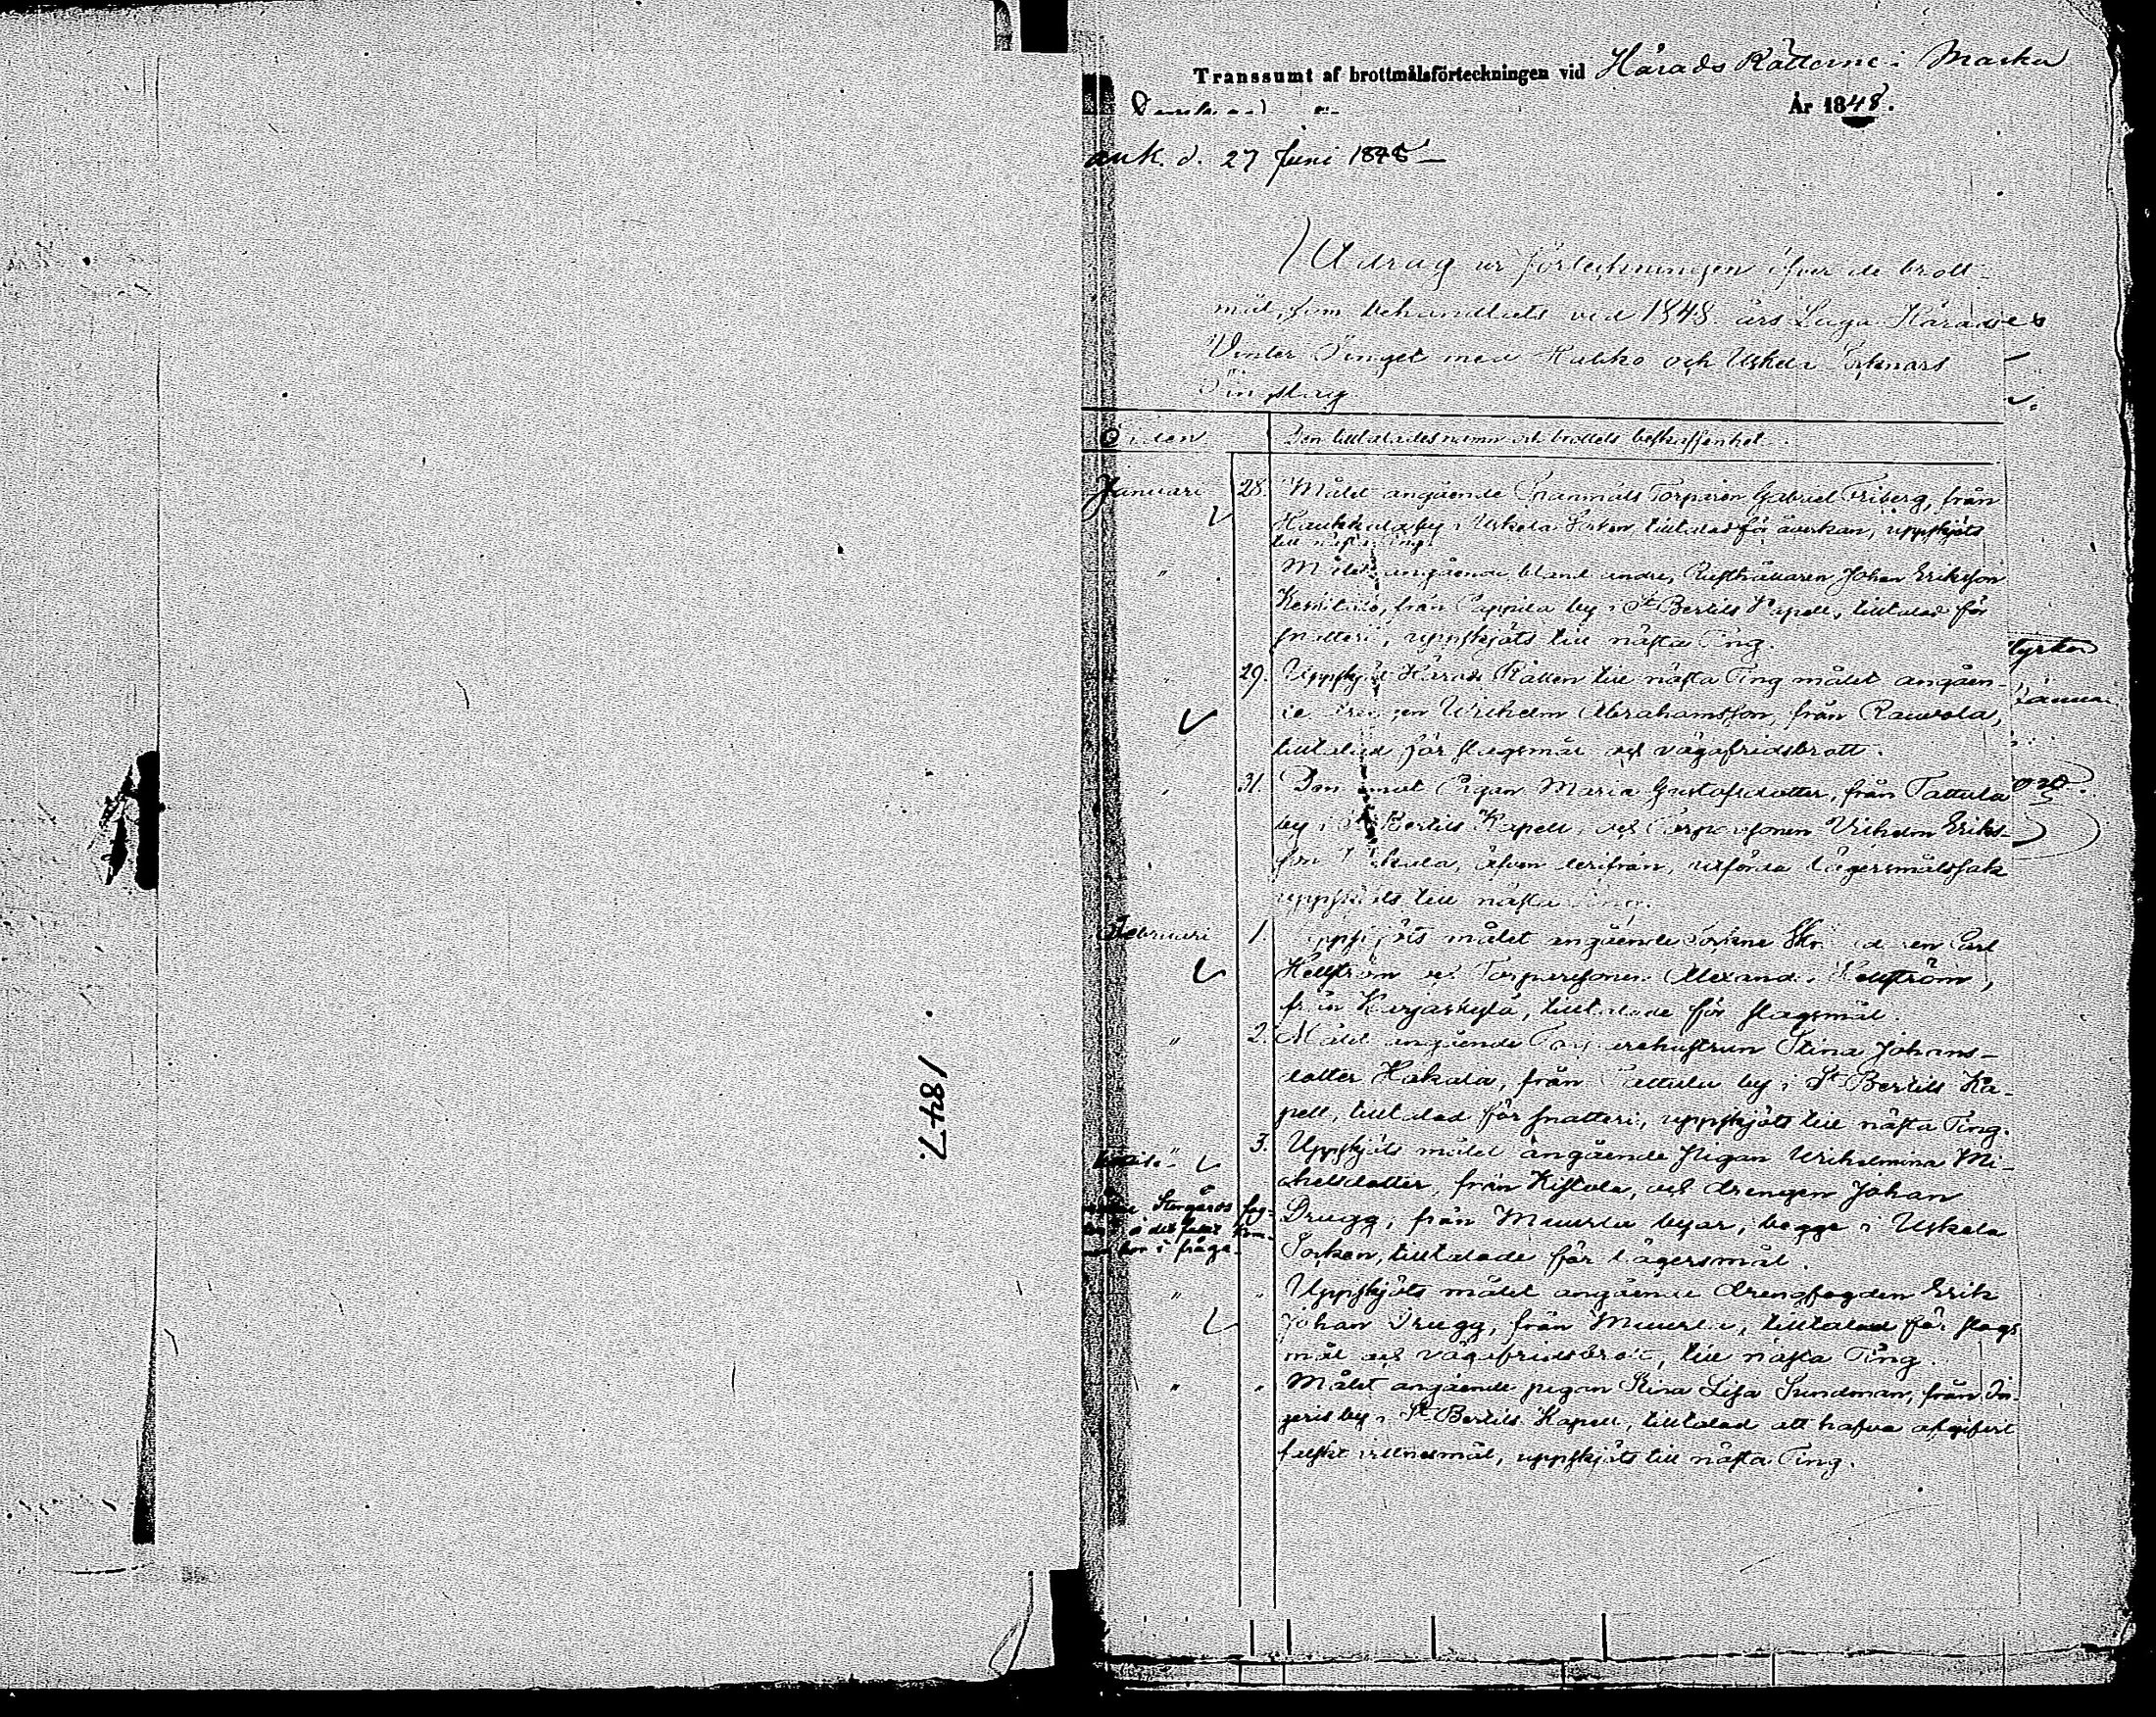 1847.
Transsumt af brottmålsförteckningen vid Härads Rätterne i Masku
År 1848.
ank. d. 27 Juni 1848
Utdrag ur förteckningen öfver de brott-
mål, som behandlats vid 1848 års Laga Härads
Vinter Tinget med Haliko och Uskela Socknars
Tingslag
Tiden
Den tilltalades namn och brottets beskaffenhet.
Januari 28. Målet angående Torparen Gabriel Friberg, från
by i Uskela Socken, tilltalad för åverkan, uppskjöts
till nästa Ting.
" Målet angående, bland andre, Rusthållaren Johan Eriksson
från Pappila by i St Bertils Kapell, tilltalad för
snatteri, uppskjöts till nästa Ting.
" 29. Uppskjöt Härads Rätten till nästa Ting målet angåen-
de Drengen Wilhelm Abrahamsson, från Rauvola,
tilltalad för slagsmål och vägafridsbrott.
" 31. Den emot Pigan Maria Gustafsdotter, från Tattula
by i St Bertils Kapell, och Torparesonen Wilhelm Eriks-
son äfven derifrån, utförda lägersmålssak
uppskjöts till nästa Ting.
Februari 1. Uppskjöts målet angående Sockne Carl
Hellström och Torparesonen Alexander Hellström,
från Karjaskylä, tilltalade för slagsmål.
" 2. Målet angående Torparehustrun Stina Johans-
dotter Hakala, från Tattula by i St Bertils Ka-
pell, tilltalad för snatteri, uppskjöts till nästa Ting.
" 3. Uppskjöts målet angående Pigan Wilhelmina Mi-
chelsdotter, från Kistola, och drengen Johan
Stengårds fog-
Drugg, från Muurla byar, begge i Uskela
i fråga
Socken, tilltalade för lägersmål.
" " Uppskjöts målet angående drengfogden Erik
Johan Drugg, från Muurla, tilltalad för slags
mål och vägafridsbrott, till nästa Ting.
" " Målet angående pigan Stina Lisa Sundman, från In-
geris by i St Bertils Kapell, tilltalad att hafva afgifvit
falskt vittnesmål, uppskjöts till nästa Ting.